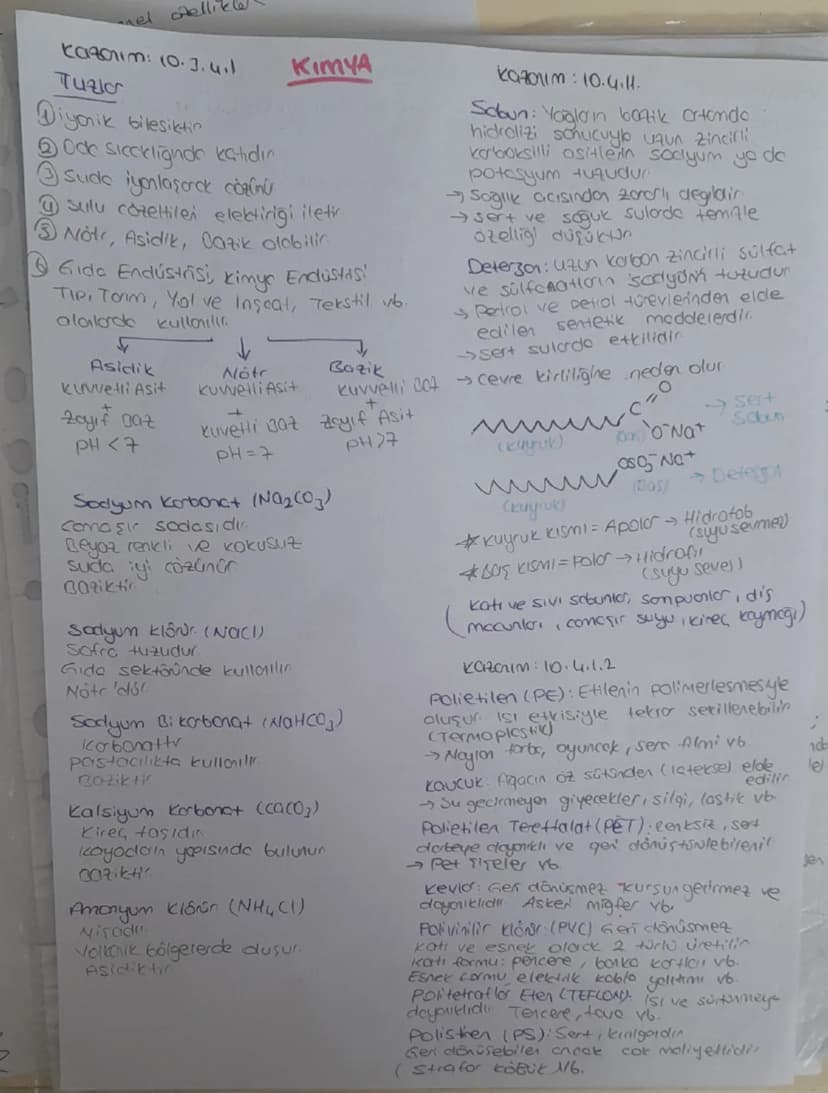 nel özellikle
Kazanım: 10.3.4.1
KİMYA
Tuzlar
① iyonik bileşiktir
② Oda sıcaklığında katıdır
③ Suda iyonlaşarak çözünür
④ Sulu çözeltileri elektiriği iletir
⑤ Nötr, Asidik, Bazik olabilir
⑥ Gıda Endüstrisi, Kimya Endüstrisi
Tıp, Tarım, Yol ve İnşaat, Tekstil vb.
alalarda kullanılır.
Asidik Nötr Bazik
Kuvvetli Asit Kuvvetli Asit Kuvvetli Baz
+ + +
Zayıf Baz Kuvetli Baz Zayıf Asit
pH < 7 pH = 7 pH > 7
Sodyum Karbonat (Na₂CO₃)
Çamaşır sodasıdır
Beyaz renkli ve kokusuz
Suda iyi çözünür
Baziktir
Sodyum Klörür (NaCl)
Sofra tuzudur
Gıda sektöründe kullanılır
Nötr'dür
Sodyum Bi karbonat (NaHCO₃)
Karbonattır
Pastacılıkta kullanılır
Baziktir
Kalsiyum Karbonat (CaCO₃)
Kireç taşıdır
Kayaçların yapısında bulunur
Baziktir
Amonyum Klörür (NH₄Cl)
Nişadır
Volkanik bölgelerde oluşur
Asidiktir
Kazanım: 10.4.1.1.
Sabun: Yağların bazik ortamda
hidrolizi sonucuyla uzun zincirli
karboksilli asitlerin sodyum ya da
potasyum tuzudur
→ Sağlık açısından zararlı değildir
→ sert ve soğuk sularda temizle
özelliği düşüktür
Deterjan: Uzun karbon zincirli sülfat
ve sülfanatların sodyum tuzudur
→ Petrol ve petrol türevlerinden elde
edilen sentetik maddelerdir.
→ sert sularda etkilidir
→ Çevre kirliliğine neden olur
C=O O⁻Na⁺ → Sert Sabun
(kuyruk) (Bas)
OSO₃⁻Na⁺ → Deterjan
(kuyruk) (Bas)
* Kuyruk kısmı = Apolar → Hidrofob
(suyu sevmez)
* Baş kısmı = Polar → Hidrofil
(suyu sever)
(Katı ve sıvı sabunlar, şampuanlar, diş
macunları, çamaşır suyu, kireç kaymağı)
Kazanım: 10.4.1.2
Polietilen (PE): Etilenin polimerleşmesiyle
oluşur. Isı etkisiyle tekrar şekillenebilir
(Termoplastik)
→ Naylon torba, oyuncak, sera filmi vb.
Kauçuk: Ağacın öz sütünden (lateksel) elde
edilir
→ Su geçirmeyen giyecekler, silgi, lastik vb.
Polietilen Tereftalat (PET): renksiz, sert
darbeye dayanıklı ve geri dönüştürülebilir
→ Pet şişeler vb.
Kevlar: Geri dönüşmez kurşun geçirmez ve
dayanıklıdır Askeri miğfer vb.
Polivinilir Klörür (PVC) Geri dönüşmez
Katı ve esnek olarak 2 türlü üretilir
Katı formu: pencere, banka kartları vb.
Esnek formu, elektrik kablo yalıtımı vb.
Politetraflor Eten (TEFLON). Isı ve sürtünmeye
dayanıklıdır Tencere, tava vb.
Polistiren (PS): Sert, kırılgandır
Geri dönüşebilen ancak çok maliyetlidir
(Strafor köpük vb.